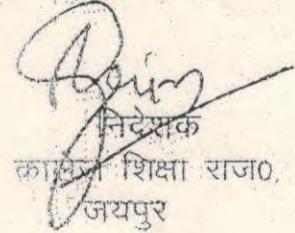 निदेशक
कालेज शिक्षा राज0,
जयपुर